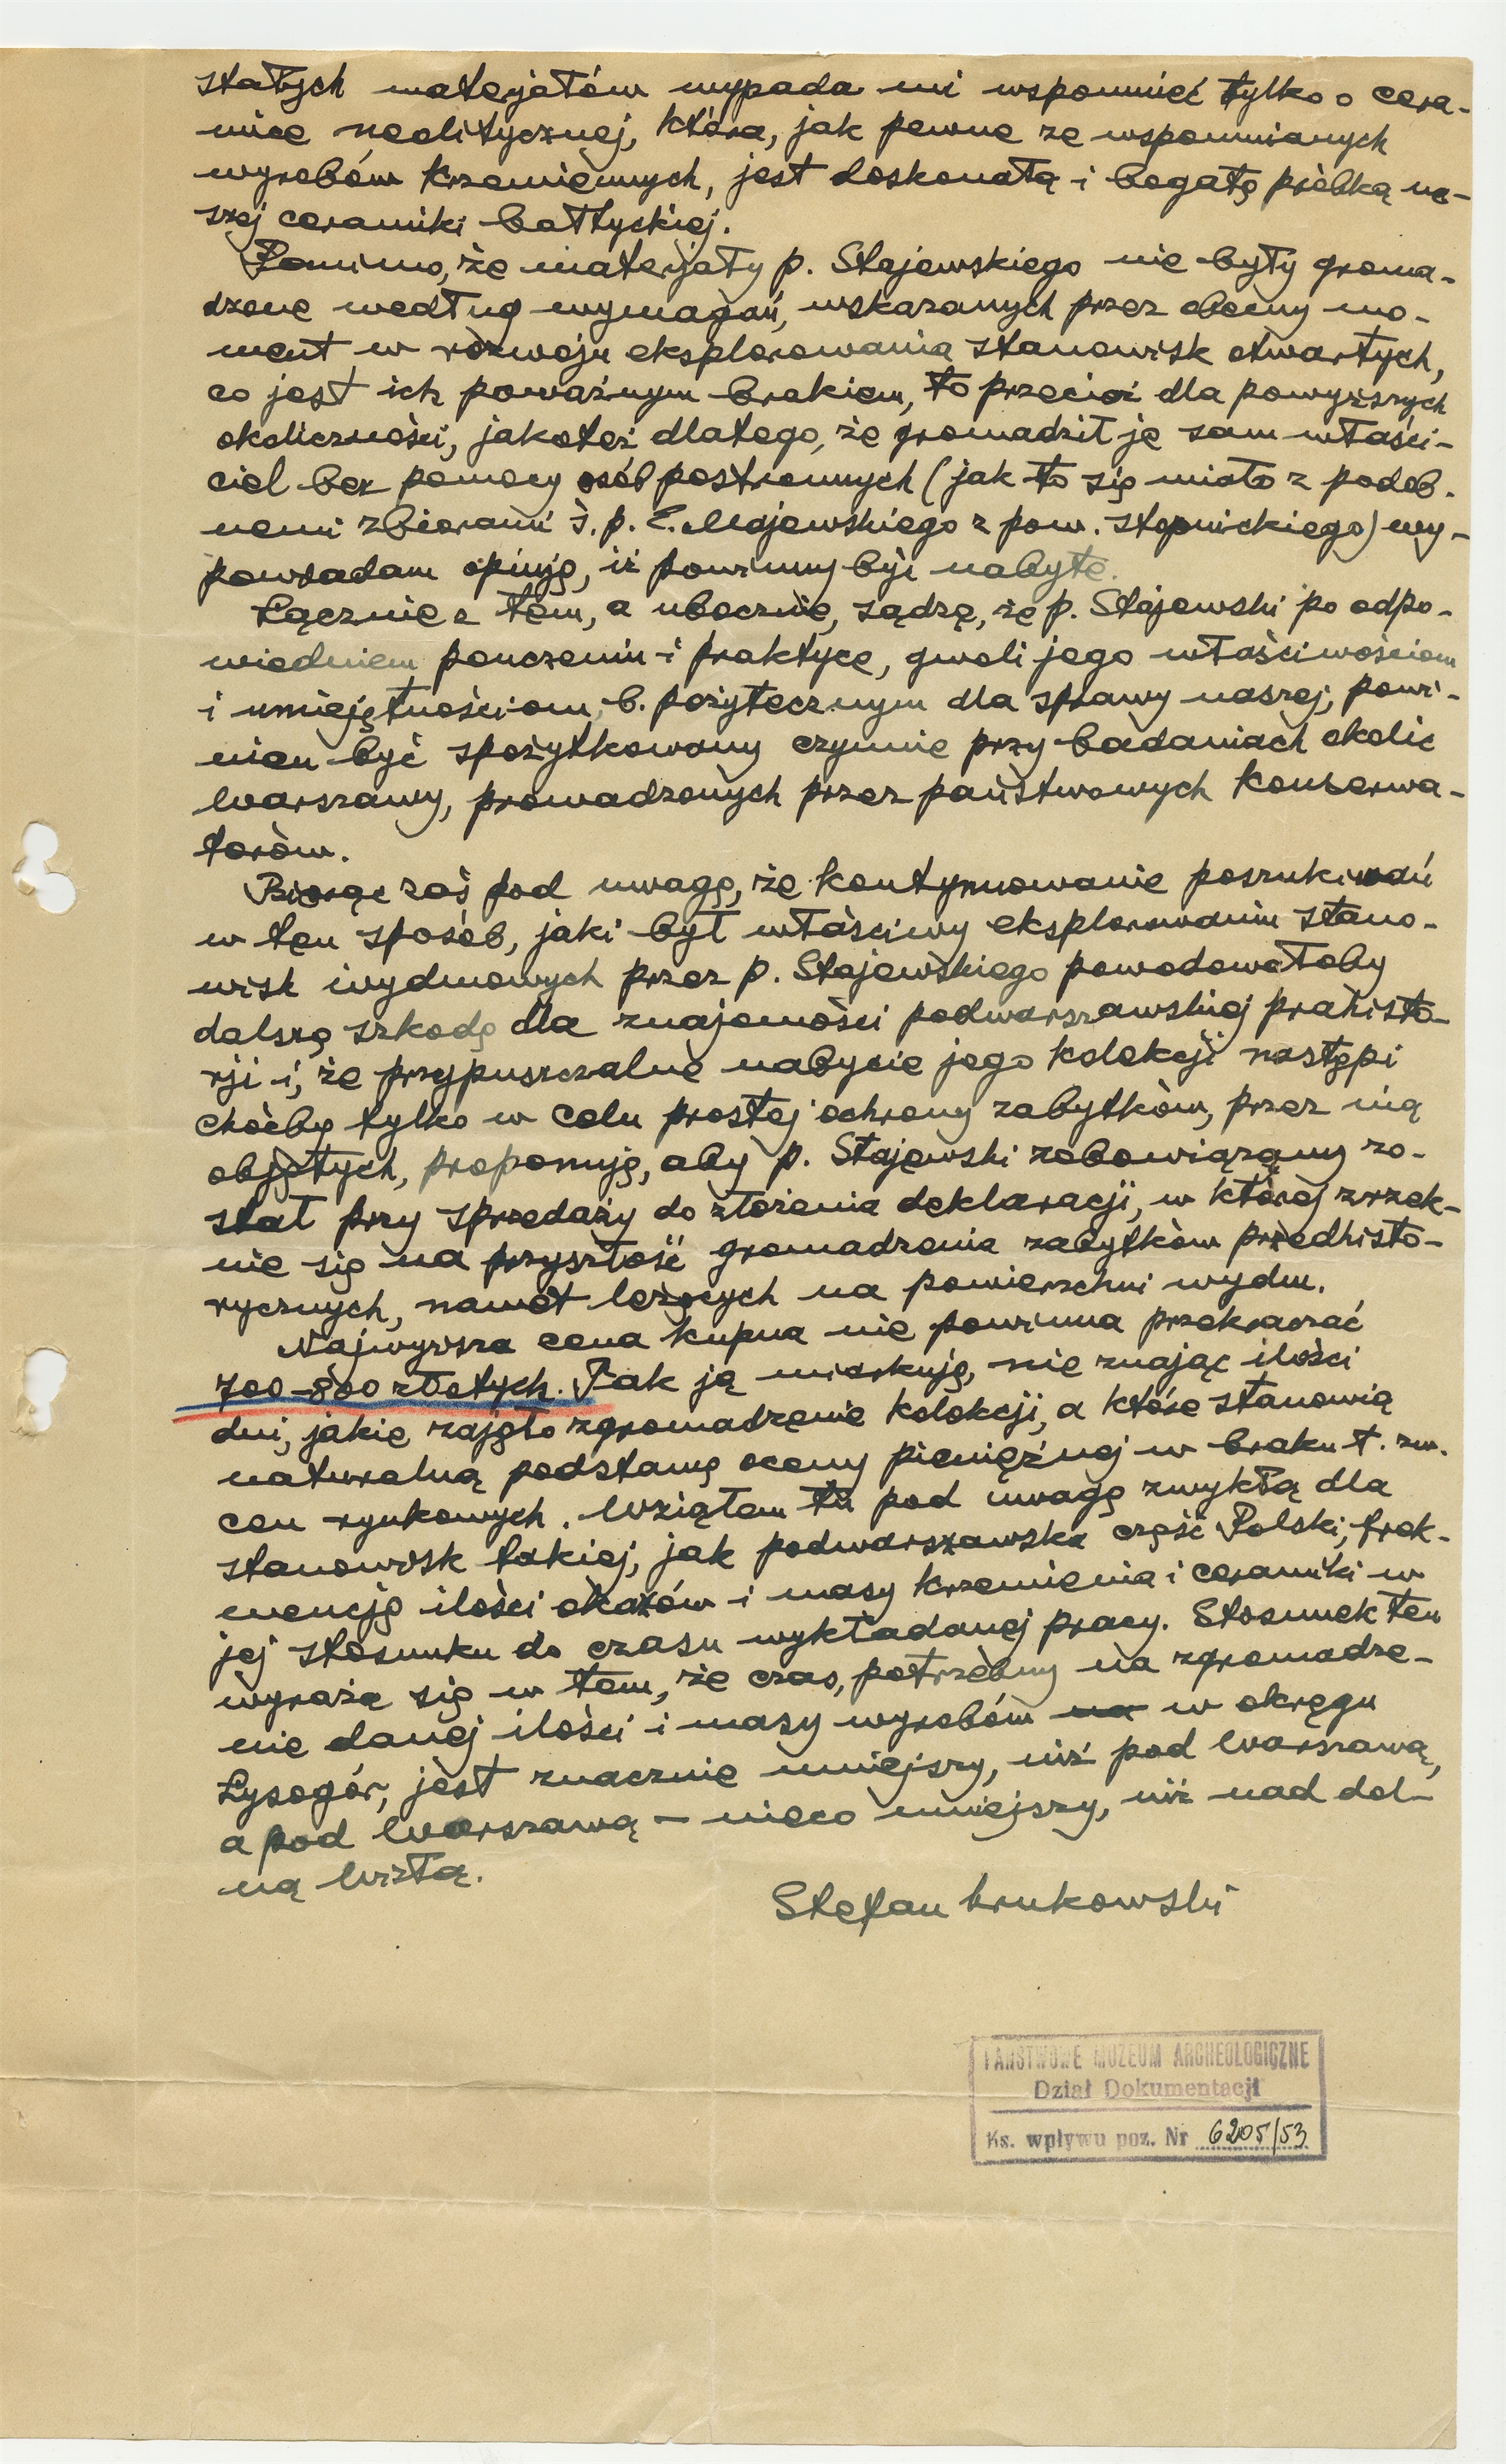 stałych materjałów wypada mi wspomnieć tylko o cera-
mice neolitycznej, która, jak pewne ze wspomnianych
wyrobów krzemiennych, jest doskonałą i bogatą próbką na-
szej ceramiki bałtyckiej.
Pomimo, że materjały p. Stajewskiego nie były groma-
dzone według wymagań, wskazanych przez obecny mo-
ment w rozwoju eksplorowania stanowisk otwartych,
co jest ich poważnym brakiem, to przecież dla powyższych
okoliczności, jakoteż dlatego, że gromadził je sam właści-
ciel bez pomocy osób postronnych (jak to się miało z podob-
nemi zbiorami ś. p. E. Majewskiego z pow. stopnickiego) wy-
powiadam opinję, iż powinny być nabyte.
Łącznie z tem, a ubocznie, sądzę, że p. Stajewski po odpo-
wiedniem pouczeniu i praktyce, gwoli jego właściwościom
i umiejętnościom, b. pożytecznym dla sprawy naszej, powi-
nien być spożytkowany czynnie przy badaniach okolic
Warszawy, prowadzonych przez państwowych konserwa-
torów.
Biorąc zaś pod uwagę, że kontynuowanie poszukiwań
w ten sposób, jaki był właściwy eksplorowaniu stano-
wisk wydmowych przez p. Stajewskiego powodowałoby
dalszą szkodę dla znajomości podwarszawskiej prahisto-
rji i, że przypuszczalne nabycie jego kolekcji nastąpi
choćby tylko w celu prostej ochrony zabytków, przez nią
objętych, proponuję, aby p. Stajewski zobowiązany zo-
stał przy sprzedaży do złożenia deklaracji, w której zrzek-
nie się na przyszłość gromadzenia zabytków przedhisto-
rycznych, nawet leżących na powierzchni wydm.
Najwyższa cena kupna nie powinna przekraczać
700-800 złotych. Tak ją miarkuję, nie znając ilości
dni, jakie zajęło zgromadzenie kolekcji, a które stanowią
naturalną podstawę oceny pieniężnej w braku t. zw.
cen rynkowych. Wziąłem tu pod uwagę zwykłą dla
stanowisk takiej, jak podwarszawska część Polski, frek-
wencję ilości okazów i masy krzemienia i ceramiki w
jej stosunku do czasu wykładanej pracy. Stosunek ten
wyraża się w tem, że czas, potrzebny na zgromadze-
nie danej ilości i masy wyrobów na w okręgu
Łysogór, jest znacznie mniejszy, niż pod Warszawą,
a pod Warszawą – nieco mniejszy, niż nad dol-
ną Wisłą.
Stefan Krukowski
PAŃSTWOWE MUZEUM ARCHEOLOGICZNE
Dział Dokumentacji
Ks. wpływu poz. Nr 6205/53